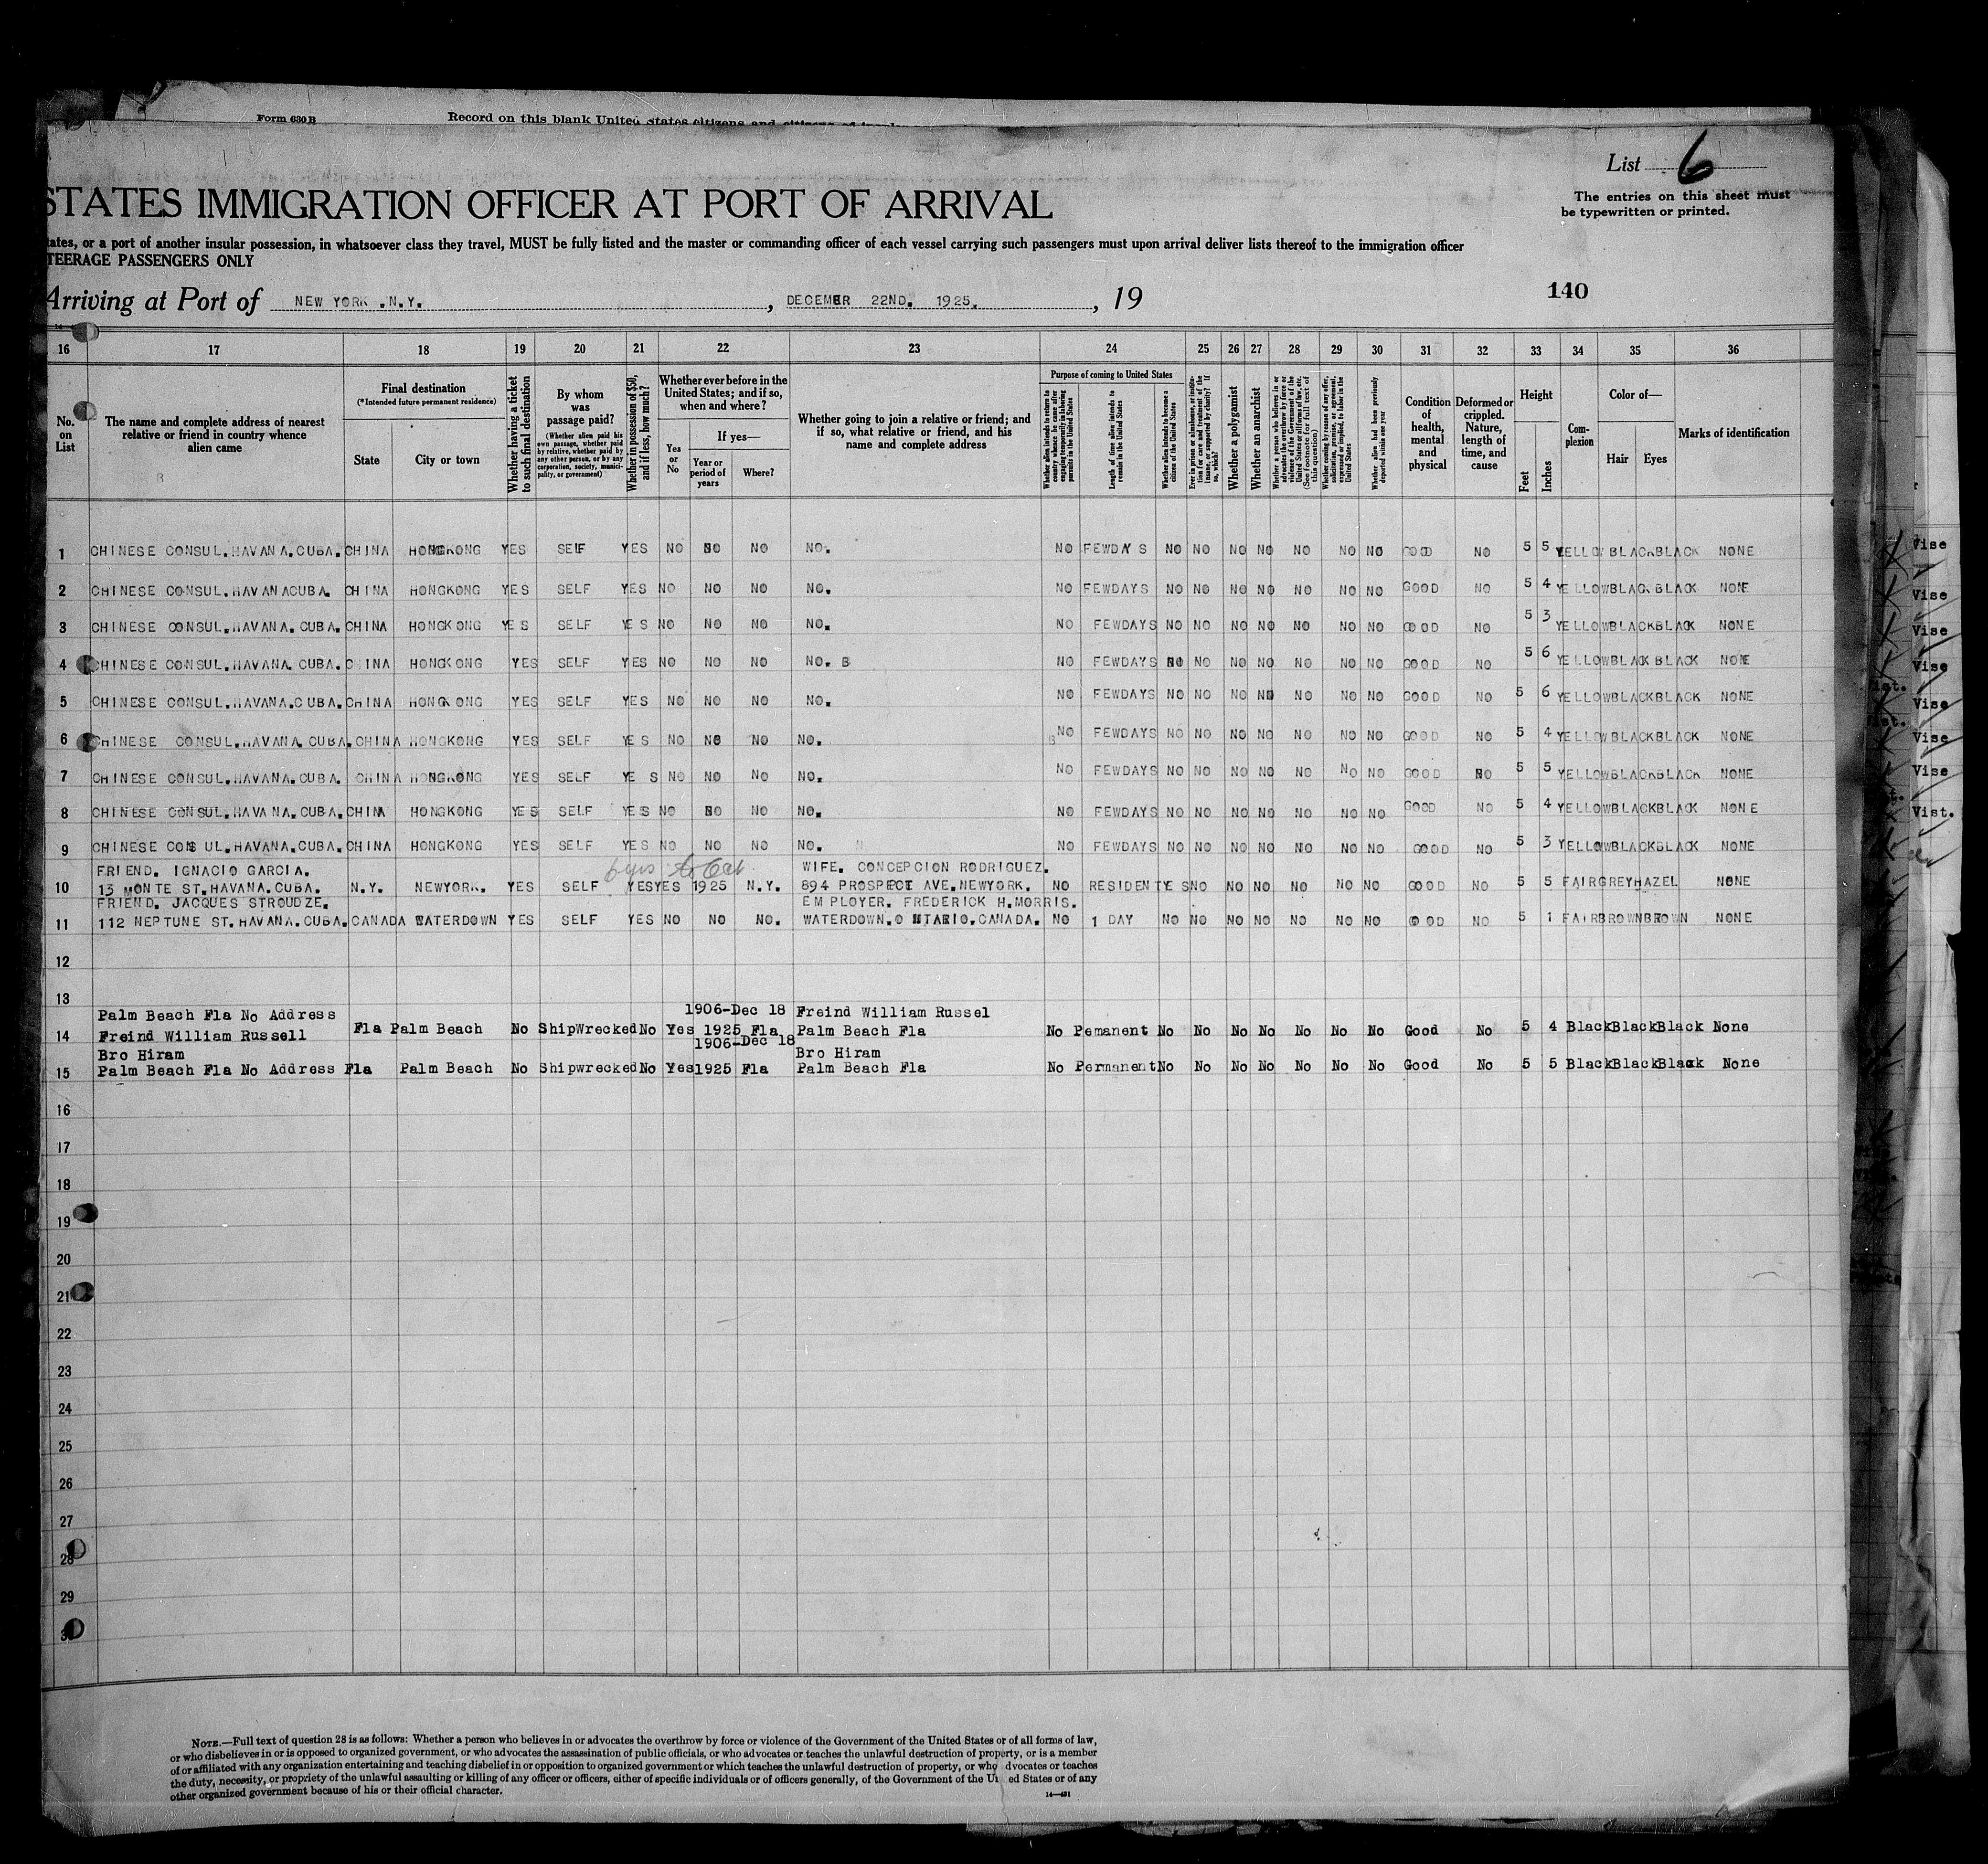 Form 630 B
Record on this blank United States citizens and citizens of
List 6
The entries on this sheet must
be typewritten or printed.
STATES IMMIGRATION OFFICER AT PORT OF ARRIVAL
ates, or a port of another insular possession, in whatsoever class they travel, MUST be fully listed and the master or commanding officer of each vessel carrying such passengers must upon arrival deliver lists thereof to the immigration officer
TEERAGE PASSENGERS ONLY
Arriving at Port of NEW YORK .N.Y. , DECEMBER 22ND. 1925. , 19
140
16 17 18 19 20 21 22 23 24 25 26 27 28 29 30 31 32 33 34 35 36
No. on List
The name and complete address of nearest relative or friend in country whence alien came
Final destination
(*Intended future permanent residence)
State
City or town
Whether having a ticket to such final destination
By whom was passage paid?
(Whether alien paid his own passage, whether paid by relative, whether paid by any other person, or by any corporation, society, municipality, or government)
Whether in possession of $50, and if less, how much?
Whether ever before in the United States; and if so, when and where?
Yes or No
If yes—
Year or period of years
Where?
Whether going to join a relative or friend; and if so, what relative or friend, and his name and complete address
Purpose of coming to United States
Whether alien intends to return to country whence he came after engaging temporarily in laboring pursuits in the United States
Length of time alien intends to remain in the United States
Whether alien intends to become a citizen of the United States
Ever in prison or almshouse, or institution for care and treatment of the insane, or supported by charity? If so, which?
Whether a polygamist
Whether an anarchist
Whether a person who believes in or advocates the overthrow by force or violence of the Government of the United States or all forms of law, etc. (See footnote for full text of this question)
Whether coming by reason of any offer, solicitation, promise, or agreement, expressed or implied, to labor in the United States
Whether alien had been previously deported within one year
Condition of health, mental and physical
Deformed or crippled. Nature, length of time, and cause
Height
Feet
Inches
Complexion
Color of—
Hair
Eyes
Marks of identification
1 CHINESE CONSUL.HAVANA.CUBA. CHINA HONGKONG YES SELF YES NO NO NO NO. NO FEWDAYS NO NO NO NO NO NO NO GOOD NO 5 5 YELLOW BLACK BLACK NONE
2 CHINESE CONSUL.HAVANACUBA. CHINA HONGKONG YES SELF YES NO NO NO NO. NO FEWDAYS NO NO NO NO NO NO NO GOOD NO 5 4 YELLOW BLACK BLACK NONE
3 CHINESE CONSUL.HAVANA.CUBA. CHINA HONGKONG YES SELF YES NO NO NO NO. NO FEWDAYS NO NO NO NO NO NO NO GOOD NO 5 3 YELLOW BLACK BLACK NONE
4 CHINESE CONSUL.HAVANA.CUBA. CHINA HONGKONG YES SELF YES NO NO NO NO. B NO FEWDAYS NO NO NO NO NO NO NO GOOD NO 5 6 YELLOW BLACK BLACK NONE
5 CHINESE CONSUL.HAVANA.CUBA. CHINA HONGKONG YES SELF YES NO NO NO NO. NO FEWDAYS NO NO NO NO NO NO NO GOOD NO 5 6 YELLOW BLACK BLACK NONE
6 CHINESE CONSUL.HAVANA.CUBA. CHINA HONGKONG YES SELF YES NO NO NO NO. NO FEWDAYS NO NO NO NO NO NO NO GOOD NO 5 4 YELLOW BLACK BLACK NONE
7 CHINESE CONSUL.HAVANA.CUBA. CHINA HONGKONG YES SELF YES NO NO NO NO. NO FEWDAYS NO NO NO NO NO NO NO GOOD NO 5 5 YELLOW BLACK BLACK NONE
8 CHINESE CONSUL.HAVANA.CUBA. CHINA HONGKONG YES SELF YES NO NO NO NO. NO FEWDAYS NO NO NO NO NO NO NO GOOD NO 5 4 YELLOW BLACK BLACK NONE
9 CHINESE CONSUL.HAVANA.CUBA. CHINA HONGKONG YES SELF YES NO NO NO NO. NO FEWDAYS NO NO NO NO NO NO NO GOOD NO 5 3 YELLOW BLACK BLACK NONE
FRIEND. IGNACIO GARCIA. 6 yrs to Oct WIFE. CONCEPCION RODRIGUEZ.
10 13 MONTE ST.HAVANA.CUBA. N.Y. NEWYORK. YES SELF YES YES 1925 N.Y. 894 PROSPECT AVE.NEWYORK. NO RESIDENT YES NO NO NO NO NO NO GOOD NO 5 5 FAIR GREY HAZEL NONE
FRIEND. JACQUES STROUDZE. EMPLOYER. FREDERICK H.MORRIS.
11 112 NEPTUNE ST.HAVANA.CUBA. CANADA WATERDOWN YES SELF YES NO NO NO. WATERDOWN.ONTARIO.CANADA. NO 1 DAY NO NO NO NO NO NO NO GOOD NO 5 1 FAIR BROWN BROWN NONE
12
13
Palm Beach Fla No Address 1906-Dec 18 Freind William Russel
14 Freind William Russell Fla Palm Beach No ShipWrecked No Yes 1925 Fla Palm Beach Fla No Pemanent No No No No No No No Good No 5 4 Black Black Black None
Bro Hiram 1906-Dec 18 Bro Hiram
15 Palm Beach Fla No Address Fla Palm Beach No Shipwrecked No Yes 1925 Fla Palm Beach Fla No Permanent No No No No No No No Good No 5 5 Black Black Black None
16
17
18
19
20
21
22
23
24
25
26
27
28
29
Vise
Vise
Vise
Vise
Vise
Vise
Vise
Vist.
NOTE.—Full text of question 28 is as follows: Whether a person who believes in or advocates the overthrow by force or violence of the Government of the United States or of all forms of law,
or who disbelieves in or is opposed to organized government, or who advocates the assassination of public officials, or who advocates or teaches the unlawful destruction of property, or is a member
of or affiliated with any organization entertaining and teaching disbelief in or opposition to organized government or which teaches the unlawful destruction of property, or who dvocates or teaches
the duty, necessity, or propriety of the unlawful assaulting or killing of any officer or officers, either of specific individuals or of officers generally, of the Government of the Un ed States or of any
other organized government because of his or their official character.
14—431